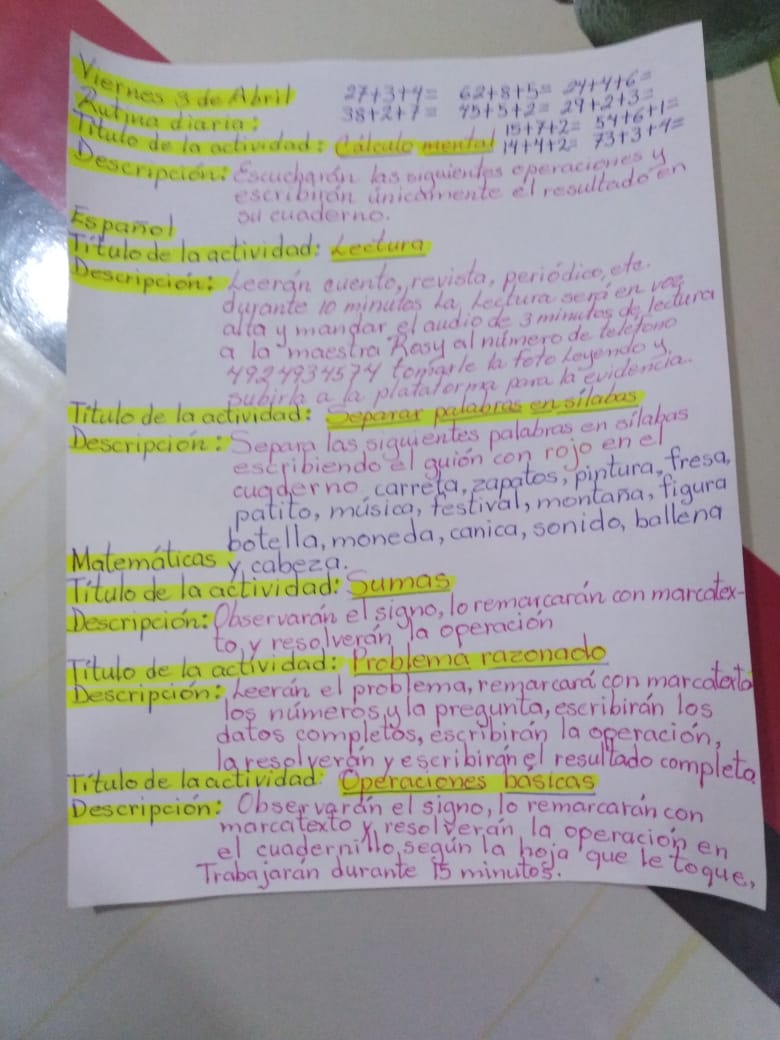 Viernes 3 de Abril 27+3+4= 62+8+5= 24+4+6=
Rutina diaria: 38+2+7= 45+5+2= 29+2+3=
Título de la actividad: Cálculo mental 15+7+2= 54+6+1=
14+4+2= 73+3+4=
Descripción: Escucharán las siguientes operaciones y
escribirán únicamente el resultado en
su cuaderno.
Español
Título de la actividad: Lectura
Descripción: Leerán cuento, revista, periódico, etc.
durante 10 minutos La Lectura será en voz
alta y mandar el audio de 3 minutos de lectura
a la maestra Rosy al número de teléfono
4924934574 tomarle la foto leyendo y
subirla a la plataforma para la evidencia.
Título de la actividad: Separar palabras en sílabas
Descripción: Separa las siguientes palabras en sílabas
escribiendo el guión con rojo en el
cuaderno carreta, zapatos, pintura, fresa,
patito, música, festival, montaña, figura
botella, moneda, canica, sonido, ballena
Matemáticas y cabeza.
Título de la actividad: Sumas
Descripción: Observarán el signo, lo remarcarán con marcatex-
to, y resolverán la operación
Título de la actividad: Problema razonado
Descripción: Leerán el problema, remarcará con marcatexto
los números y la pregunta, escribirán los
datos completos, escribirán la operación,
la resolverán y escribirán el resultado completo
Título de la actividad: Operaciones basicas
Descripción: Observarán el signo, lo remarcarán con
marcatexto y resolverán la operación en
el cuadernillo, según la hoja que le toque,
Trabajarán durante 15 minutos.